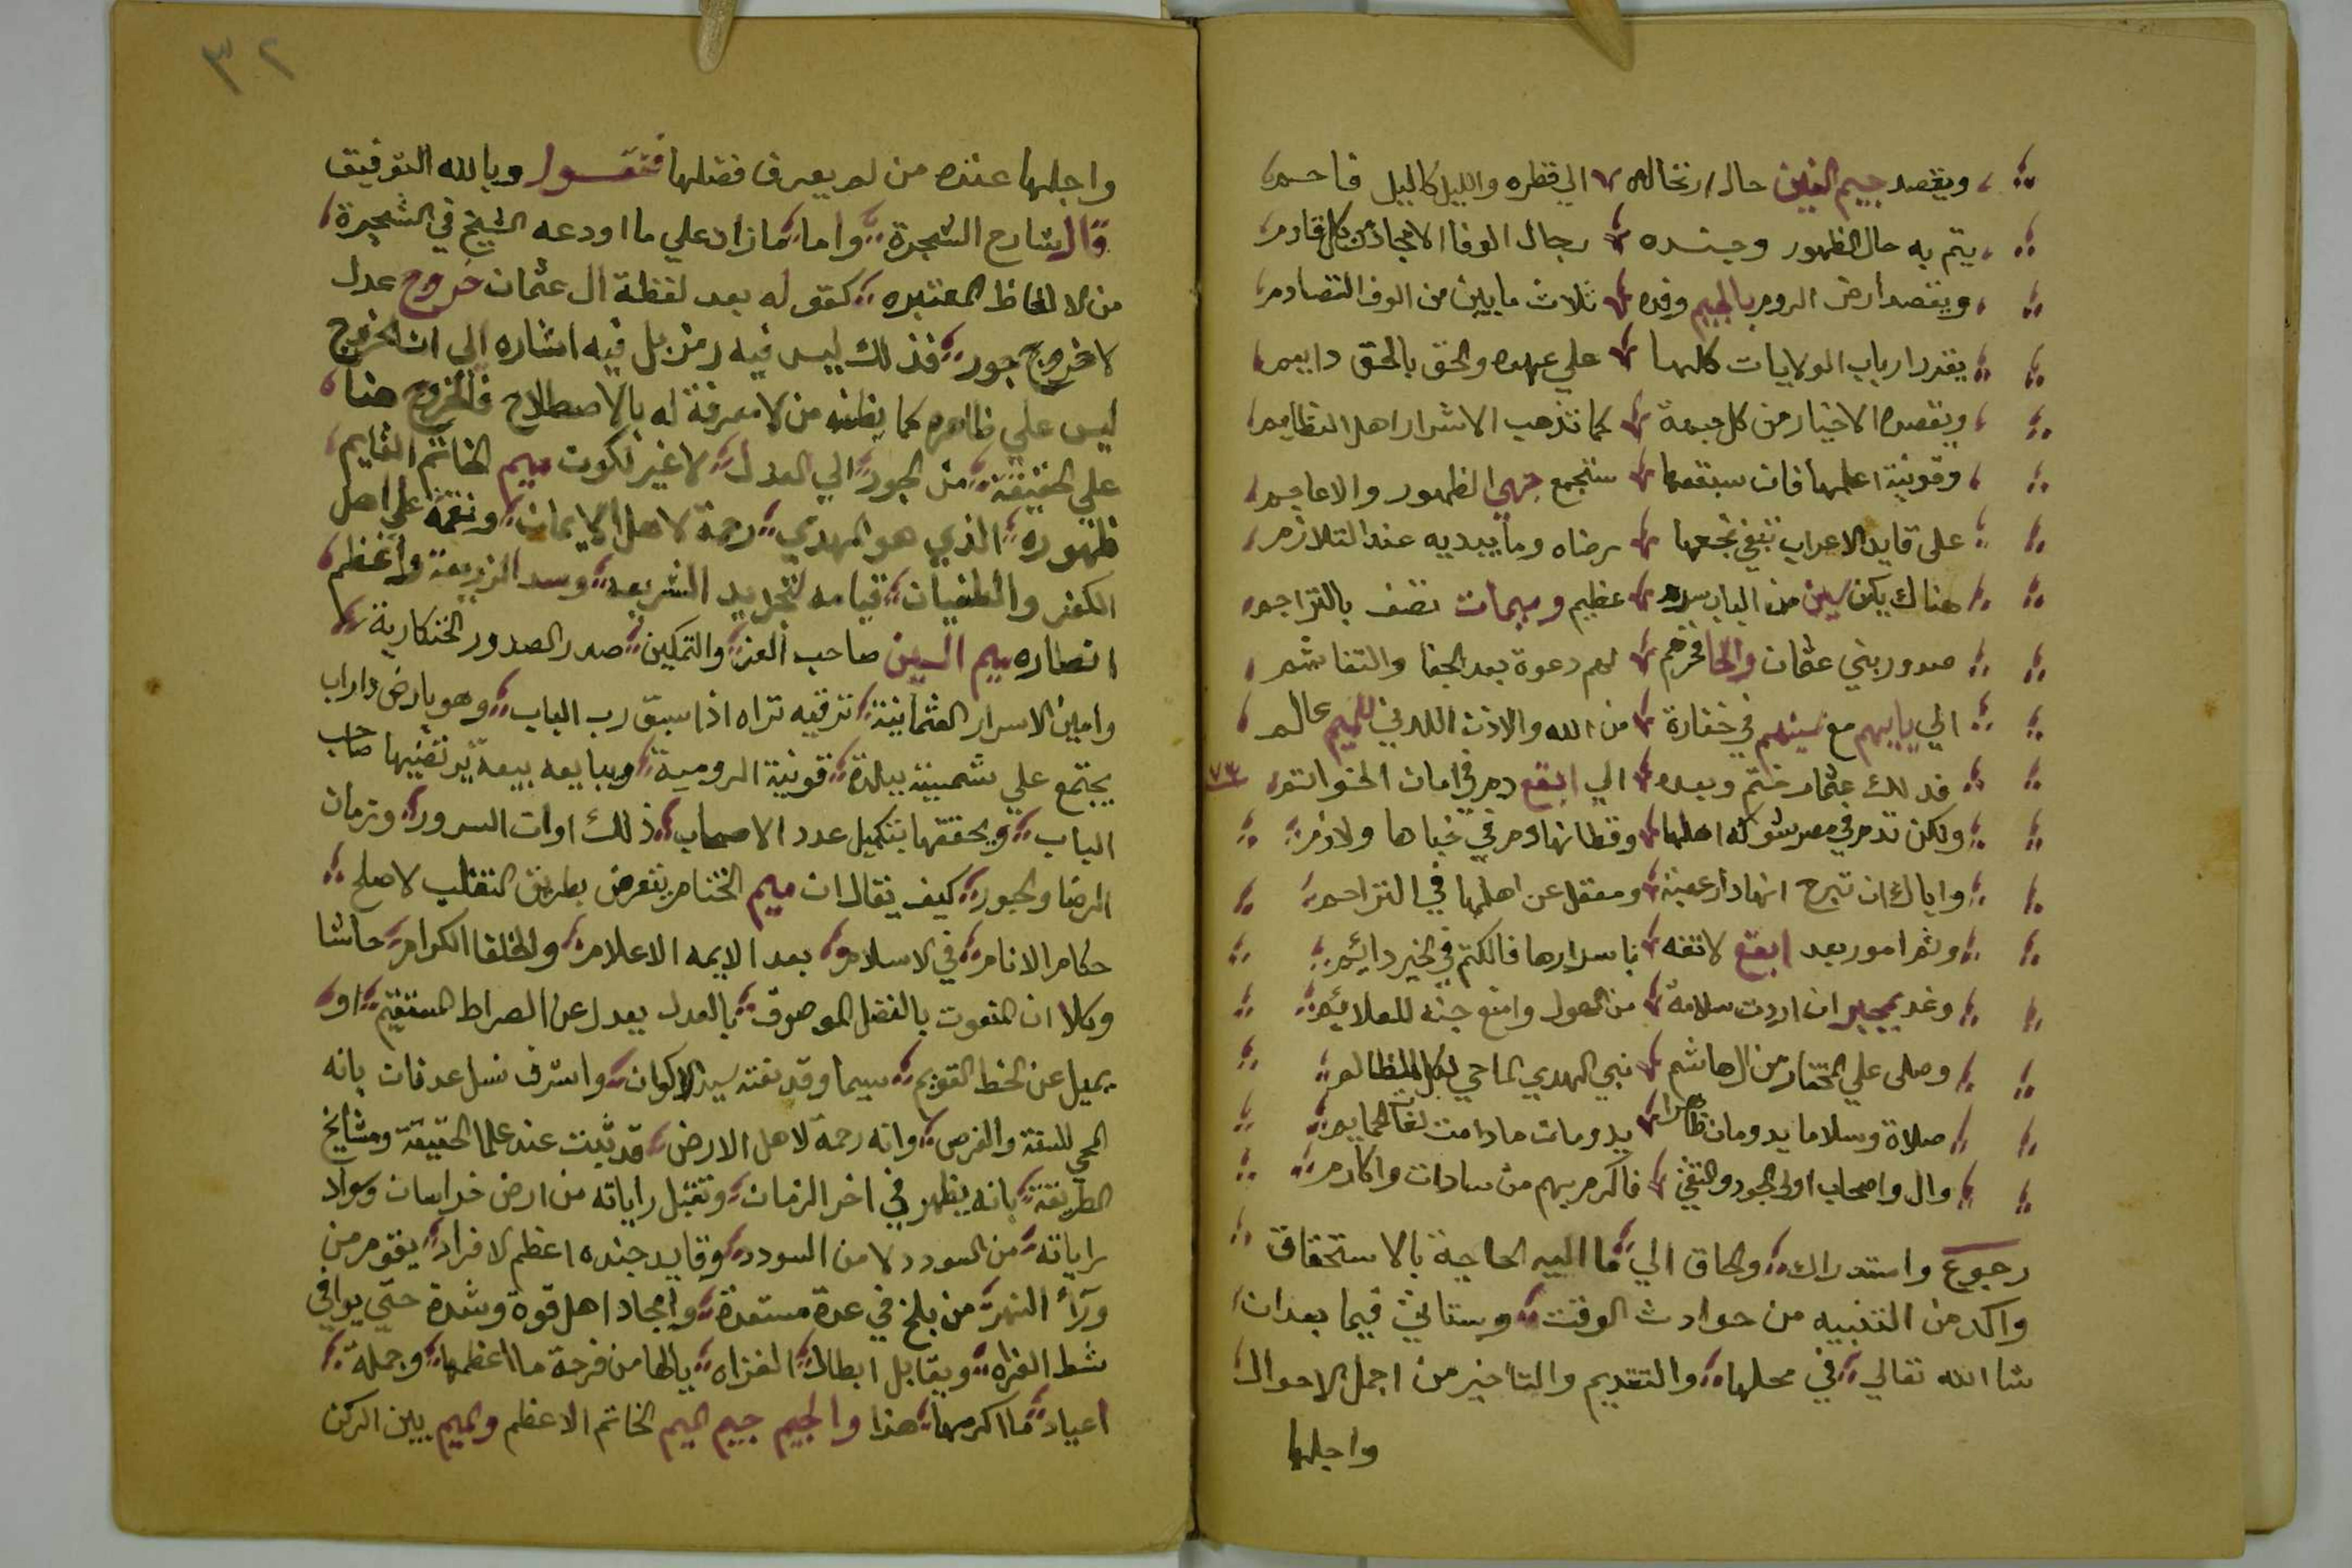 ويقصد جيم الغين حال ارتحاله الي قطره والليل كالليل فاحم
يتم به حال الظهور وجنده رجال الوفا الامجاد من كل قادم
ويقصد ارض الروم بالجيم وفده ثلاث مايين من الوف التصادم
يقرر ارباب الولايات كلها علي عهده والحق بالحق دايم
ويقصده الاخيار من كل جهة كما تذهب الاشرار اهل النظايم
وقونية اعلمها فان سبقعها ستجمع جهي الظهور والاعاجم
على قايد الاعراب تبغي تجمعها رضاه وما يبديه عند التلازم
هناك يكن سين من الباب سره عظيم وميمات تضف بالتراجم
صدور بني عثمان والخا فخرهم لهم دعوة بعد الجفا والتفاشم
الي يابيهم مع سينهم في خفارة من الله والاذن اللدني للميم عالم
فدلك عثمان ختم وبعده الي ابقع دم في امان الخواتم
٧٣
ولكن تدم في مصر شوكة اهلها وقطانها دم في خباها ولازم
واياك ان تبرح انها دار عفية ومعقل عن اهلها في التراحم
وثم امور بعد ابقع لاتفه باسرارها فالكتم في الخير دايم
وغد بجبر ان اردت سلامة من الهول وامنع جنه للعلايم
وصلى علي المختار من ال هاشم نبي الهدي الماحي لكل المظالم
صلاة وسلاما يدومان ظاهرا يدومان مادامت لغات الحمايم
وال واصحاب اولى الجود والتقي فاكرم بهم من سادات واكارم
رجوع واستدراك والحاق الي ما اليه الحاجة بالاستحقاق
واكد من التنبيه من حوادث الوقت وستاتي فيما بعد ان
شا الله تعالي في محلها والتقديم والتاخير من اجمل الاحوال
واجلها
٣٢
واجلها عنده من لم يعرف فضلها فنقول وبالله التوفيق
قال شارح الشجرة واما ما زاد علي ما اودعه الشيخ في الشجرة
من الالفاظ المعتبره كقوله بعد لفظة ال عثمان خروج عدل
لا خروج جور فذلك ليس فيه رمز بل فيه اشاره الي ان الخروج
ليس علي ظاهره كما يظنه من لا معرفة له بالاصطلاح فالخروج هنا
علي الحقيقة من الجور الي العدل لا غير لكون ميم الخاتم القايم
ظهوره الذي هو المهدي رحمة لاهل الايمان ونقمة علي اهل
الكفر والطغيان قيامه لتجديد الشريعه وسد الذريعة واعظم
انصاره ميم السين صاحب العز والتمكين صدر الصدور الخنكارية
وامين الاسرار العثمانية ترقبه تراه اذا سبق رب الباب وهو بارض داراب
يجتمع علي شمبينة ببلدة قونية الرومية ويبايعه بيعة يرتضيها صاحب
الباب ويحققها بتكميل عدد الاصحاب ذلك اوان السرور وزمان
الرضا والحبور كيف يقال ان ميم الختام ينقرض بطريق التغلب لا صلح
حكام الانام في الاسلام بعد الايمه الاعلام والخلفا الكرام حاشا
وكلا ان المنعوت بالفضل الموصوف بالعدل يعدل عن الصراط المستقيم او
يميل عن الخط القويم سيما وقد نعته سيد الاكوان واشرف نسل عدنان بانه
المحي للسنة والفرض وانه رحمة لاهل الارض قد ثبت عند علما الحقيقة ومشايخ
الطريقة بانه يظهر في اخر الزمان وتقبل راياته من ارض خراسان وسواد
راياته من السودد لا من السودد وقايد جنده اعظم الافراد يقوم من
ورآء النهر من بلخ في عدة مستعدة وامجاد اهل قوة وشدة حتي يوافي
شط الفراه ويقابل ابطال الغزاه يالها من فرحة ما اعظمها وجملة
اعياد ما اكرمها هذا والجيم جيم الميم الخاتم الاعظم والميم بين الركن